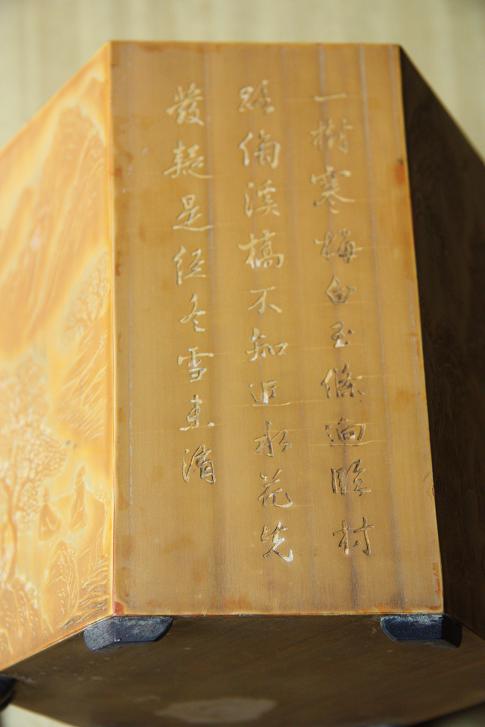 一樹寒梅白玉條迥臨村
路傍溪橋不知近水花先
發疑是經冬雪未消